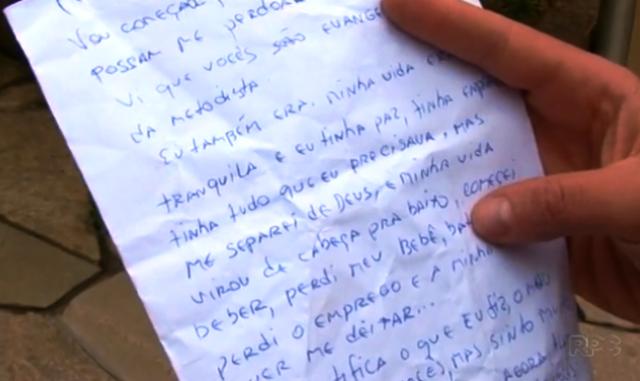 VOU COMEÇAR
POSSAM ME PERDOAR
VI QUE VOCÊS SÃO EVANGE
DA METODISTA.
EU TAMBÉM ERA. MINHA VIDA ERA
TRANQUILA E EU TINHA PAZ, TINHA EMPRE
TINHA TUDO QUE EU PRECISAVA, MAS
ME SEPAREI DE DEUS, E MINHA VIDA
VIROU DE CABEÇA PRA BAIXO, COMECEI
BEBER, PERDI MEU BEBÊ, BA
PERDI O EMPREGO E A MINHA
ME DEITAR...
TIFICA O QUE EU FIZ, O MEU
MAS SINTO MUI
AGORA
RPC